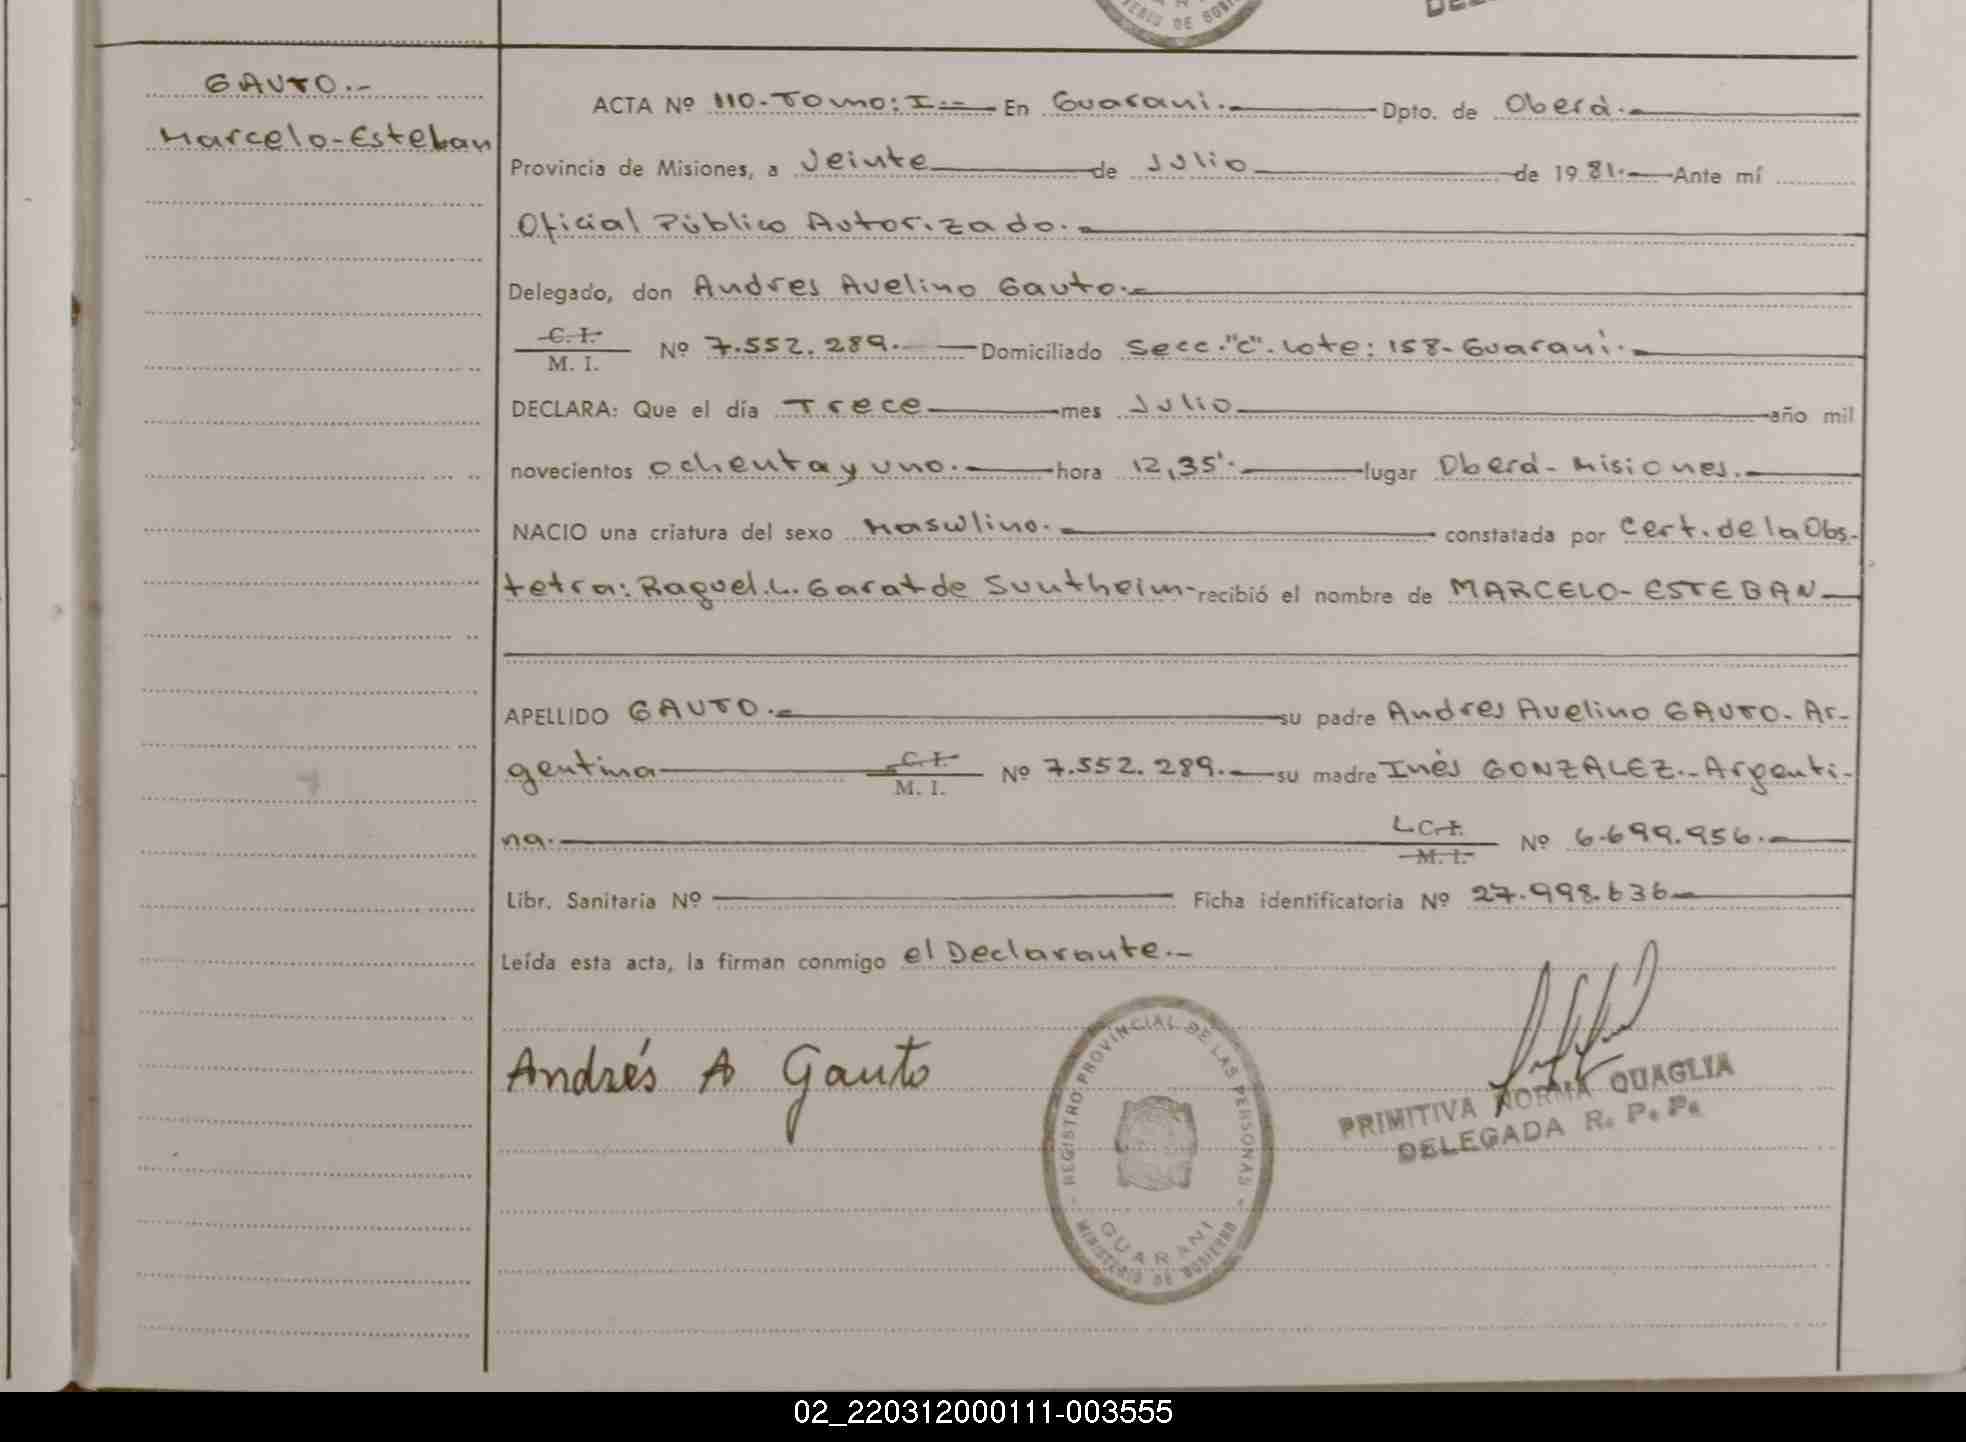 GAUTO.-
Marcelo-Esteban
ACTA Nº 110-Tomo: I.- En Guarani.- Dpto. de Oberá.-
Provincia de Misiones, a Veinte de Julio de 1981.- Ante mí
Oficial Público Autorizado.-
Delegado, don Andres Avelino Gauto.-
C. I.
M. I. Nº 7.552.289.- Domiciliado Secc."C". Lote: 158-Guarani.-
DECLARA: Que el día Trece mes Julio año mil
novecientos ochenta y uno.- hora 12,35'.- lugar Oberá-Misiones.-
NACIO una criatura del sexo Masculino.- constatada por Cert. de la Obs-
tetra: Raquel.L. Garat de Suntheim- recibió el nombre de MARCELO-ESTEBAN
APELLIDO GAUTO.- su padre Andres Avelino GAUTO- Ar-
gentina C. I.
M. I. Nº 7.552.289.- su madre Inés GONZALEZ.- Argenti-
na.- L C. I.
M. I. Nº 6.699.956.-
Libr. Sanitaria Nº Ficha identificatoria Nº 27.998.636
Leída esta acta, la firman conmigo el Declarante.-
Andrés A Gauto
REGISTRO PROVINCIAL DE LAS PERSONAS
GUARANI
MINISTERIO DE GOBIERNO
PRIMITIVA NORMA QUAGLIA
DELEGADA R. P. P.
02_220312000111-003555